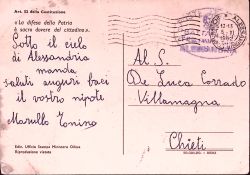 Art. 52 della Costituzione
«La difesa della Patria
è sacro dovere del cittadino».
Sotto il cielo
di Alessandria
manda
saluti auguri baci
il vostro nipote
Marullo Tonino
Ediz. Ufficio Stampa Ministero Difesa
Riproduzione vietata
Al S.
De Luca Corrado
Villamagna
Chieti